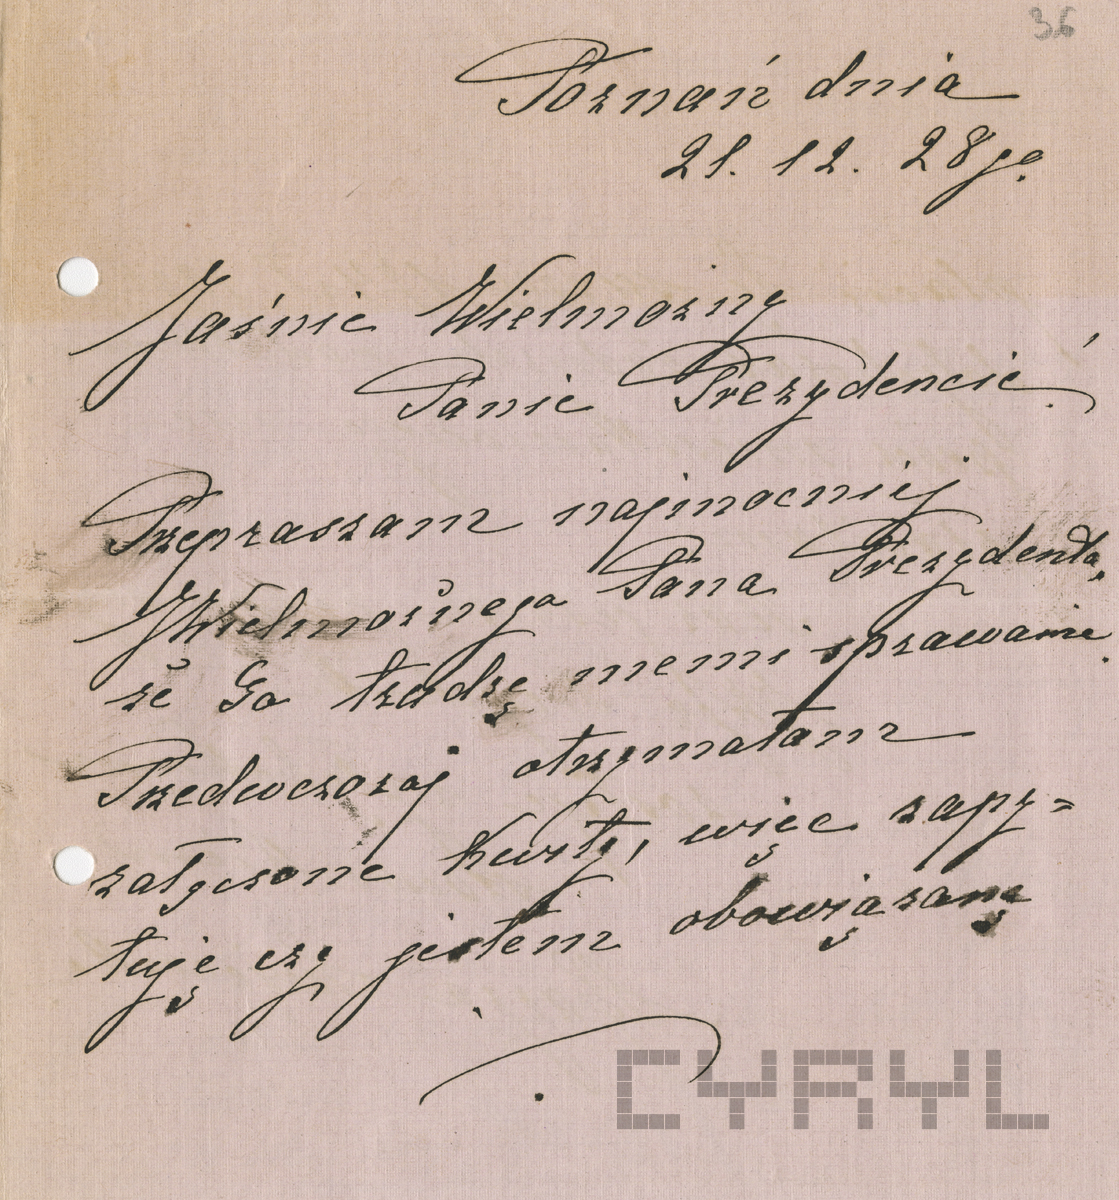 36
Poznań dnia
21. 12. 28 go.
Jaśnie Wielmożny
Panie Prezydencie!
Przepraszam najmocniej
Wielmożnego Pana Prezydenta,
że Go trudzę memi sprawami.
Przedwczoraj otrzymałam
załączone kwity, więc zapy=
tuję czy jestem obowiązaną
CYRYL